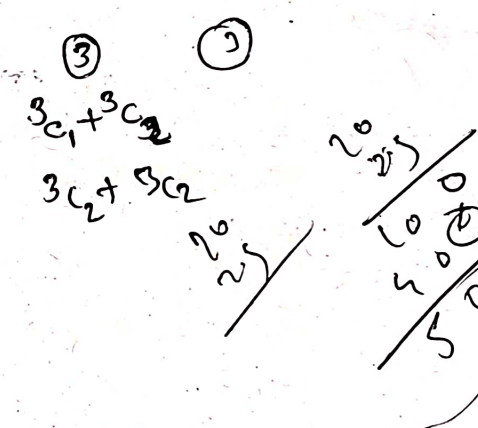 3
3c₁ + 3c₂
3c₂ + 3c₂
20
25
20
25
0
10
40
5